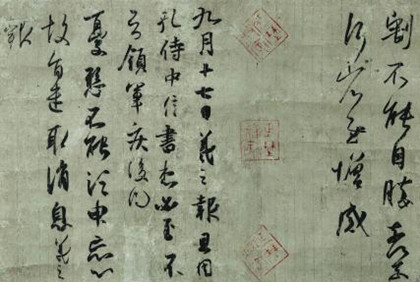 割不能自勝奈何奈
何省慰增感
九月十七日羲之報且因
孔侍中信書想必至不
知領軍疾後問
憂懸不能須臾忘心
故旨遣取消息羲之
報